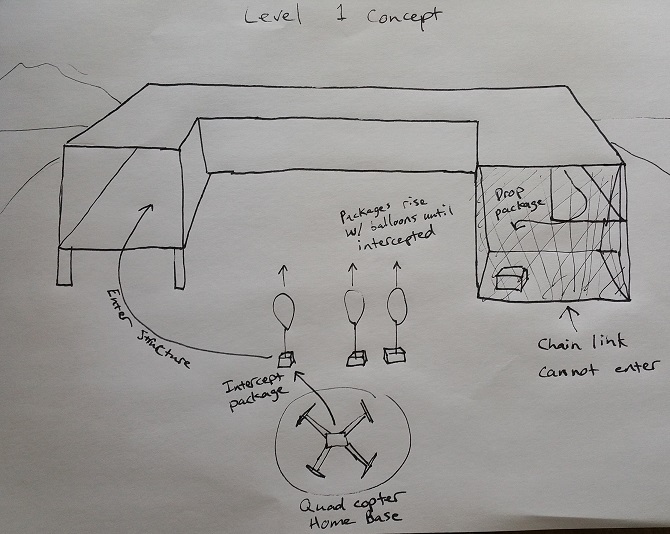 Level 1 Concept
Packages rise
w/ balloons until
intercepted
Drop
package
Enter Structure
Intercept
package
Chain link
Cannot enter
Quad copter
Home Base